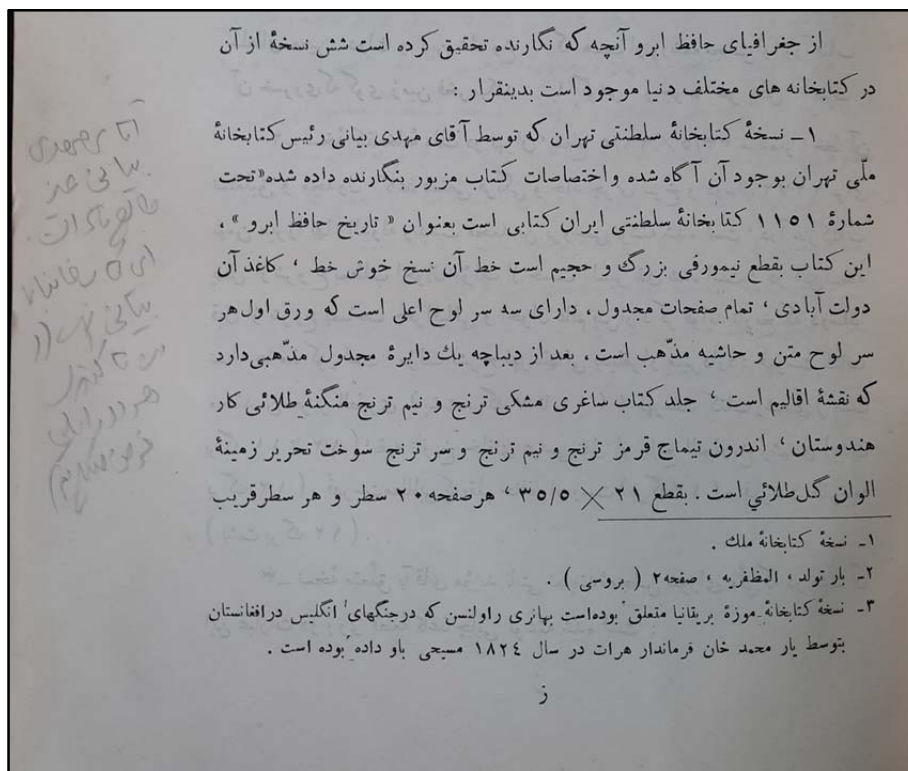 از جغرافیای حافظ ابرو آنچه که نگارنده تحقیق کرده است شش نسخهٔ از آن
در کتابخانه های مختلف دنیا موجود است بدینقرار :
۱ـ نسخهٔ کتابخانهٔ سلطنتی تهران که توسط آقای مهدی بیانی رئیس کتابخانهٔ
ملّی تهران بوجود آن آگاه شده واختصاصات کتاب مزبور بنگارنده داده شده«تحت
شمارهٔ ۱۱۵۱ کتابخانهٔ سلطنتی ایران کتابی است بعنوان « تاریخ حافظ ابرو » ،
این کتاب بقطع نیمورقی بزرگ و حجیم است خط آن نسخ خوش خط ، کاغذ آن
دولت آبادی ، تمام صفحات مجدول ، دارای سه سر لوح اعلی است که ورق اول هر
سر لوح متن و حاشیه مذّهب است ، بعد از دیباچه یك دایرهٔ مجدول مذّهبی دارد
که نقشهٔ اقالیم است ، جلد کتاب ساغری مشکی ترنج و نیم ترنج منگنهٔ طلائی کار
هندوستان ، اندرون تیماج قرمز ترنج و نیم ترنج و سر ترنج سوخت تحریر زمینهٔ
الوان گل طلائی است . بقطع ۲۱ × ۳۵/۵ ، هر صفحه ۲۰ سطر و هر سطر قریب
۱ـ نسخهٔ کتابخانهٔ ملك .
۲ـ بار تولد ، المظفریه ، صفحه۲ ( بروسی ) .
۳ـ نسخهٔ کتابخانهٔ موزهٔ بریقانیا متعلق بوده‌است بهانری راولنسن که درجنگهای انگلیس درافغانستان
بتوسط یار محمد خان فرماندار هرات در سال ۱۸۲٤ مسیحی باو داده بوده است .
ز
آقای مهدی
بیانی